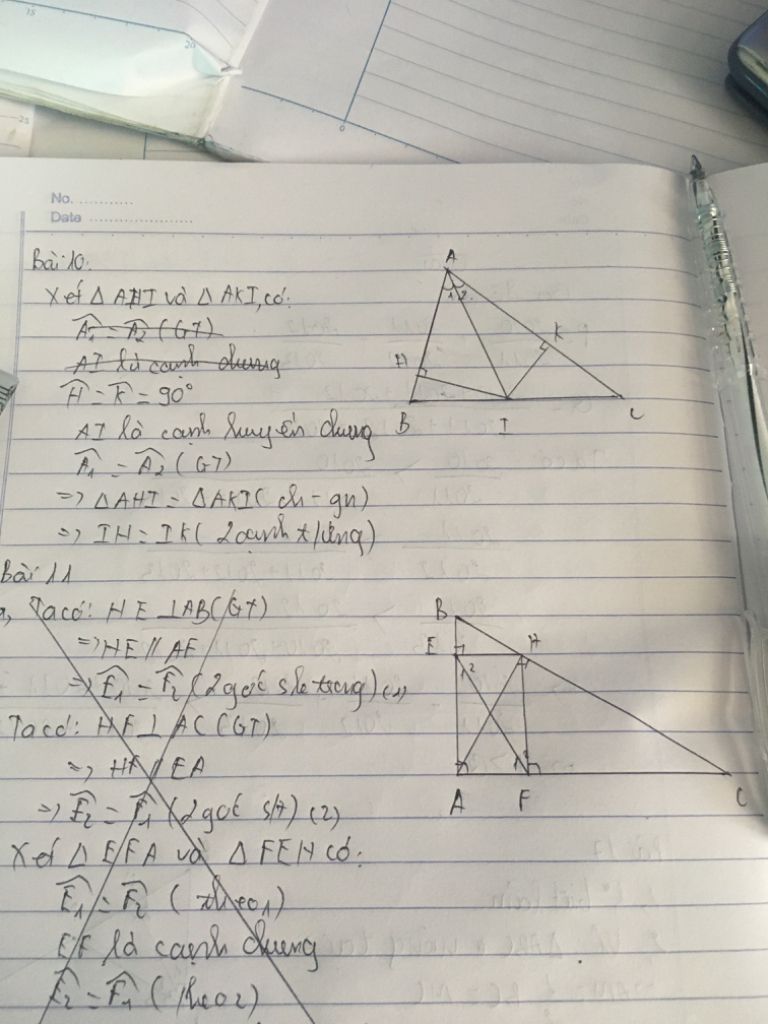 No. ............
Date ........................
Bài 10:
Xét △ AHI và △ AKI, có:
Â₁ = Â₂ (GT)
AI là cạnh chung
Ĥ = K̂ = 90°
AI là cạnh huyền chung
Â₁ = Â₂ (GT)
=> △AHI = △AKI (ch - gn)
=> IH = IK (2 cạnh t/ứng)
A
1 2
K
H
B I C
Bài 11
a, Ta có: HE ⊥ AB (GT)
=> HE // AF
=> Ê₁ = F̂₂ (2 góc sle trong) (1)
Ta có: HF ⊥ AC (GT)
=> HF // EA
=> Ê₂ = F̂₁ (2 góc slt) (2)
Xét △ EFA và △ FEH có:
Ê₁ = F̂₂ (theo 1)
EF là cạnh chung
Ê₂ = F̂₁ (theo 2)
B
E H
1 2
1 2
A F C